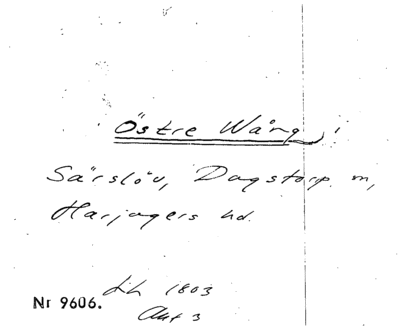 Östre Wång i
Särslöv, Dagstorp m,
Harjagers hd.
Lh 1803
Nr 9606.
Akt 3